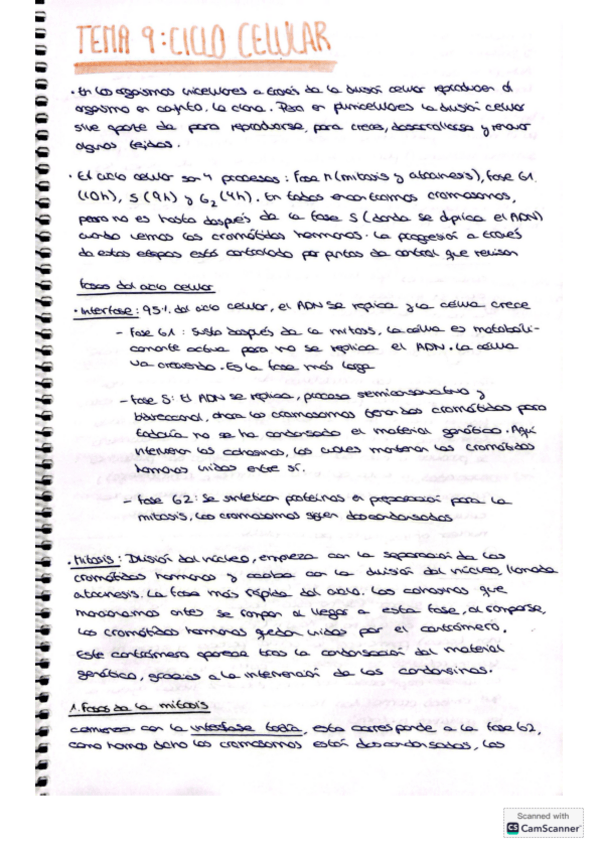 TEMA 9: CICLO CELULAR
• En los organismos unicelulares a través de la división celular reproducen el
organismo en conjunto, la clona. Pero en pluricelulares la división celular
sirve aparte de para reproducirse, para crecer, desarrollarse y renovar
algunos tejidos.
• El ciclo celular son 4 procesos: Fase M (mitosis y citocinesis), fase G1
(10h), S (9h) y G2 (4h). En todos encontramos cromosomas,
pero no es hasta después de la fase S (donde se duplica el ADN)
cuando vemos las cromátidas hermanas. La progresión a través
de estas etapas está controlado por puntos de control que revisan
Fases del ciclo celular
• Interfase: 95% del ciclo celular, el ADN se replica y la célula crece
- Fase G1: Justo después de la mitosis, la célula es metabóli-
camente activa pero no se replica el ADN. La célula
va creciendo. Es la fase más larga
- Fase S: El ADN se replica, proceso semiconservativo y
bidireccional, ahora los cromosomas tienen dos cromátidas pero
todavía no se ha condensado el material genético. Aquí
intervienen las cohesinas, las cuales mantienen las cromátidas
hermanas unidas entre sí.
- Fase G2: Se sintetizan proteínas en preparación para la
mitosis, los cromosomas siguen descondensados
• Mitosis: División del núcleo, empieza con la separación de las
cromátidas hermanas y acaba con la división del núcleo, llamada
citocinesis. La fase más rápida del ciclo. Las cohesinas que
mencionamos antes se rompen al llegar a esta fase, al romperse,
las cromátidas hermanas quedan unidas por el centrómero.
Este centrómero aparece tras la condensación del material
genético, gracias a la intervención de las condensinas.
1. Fases de la mitosis
comienza con la interfase, esta corresponde a la fase G2,
como hemos dicho los cromosomas están descondensados, los
Scanned with
CS CamScanner